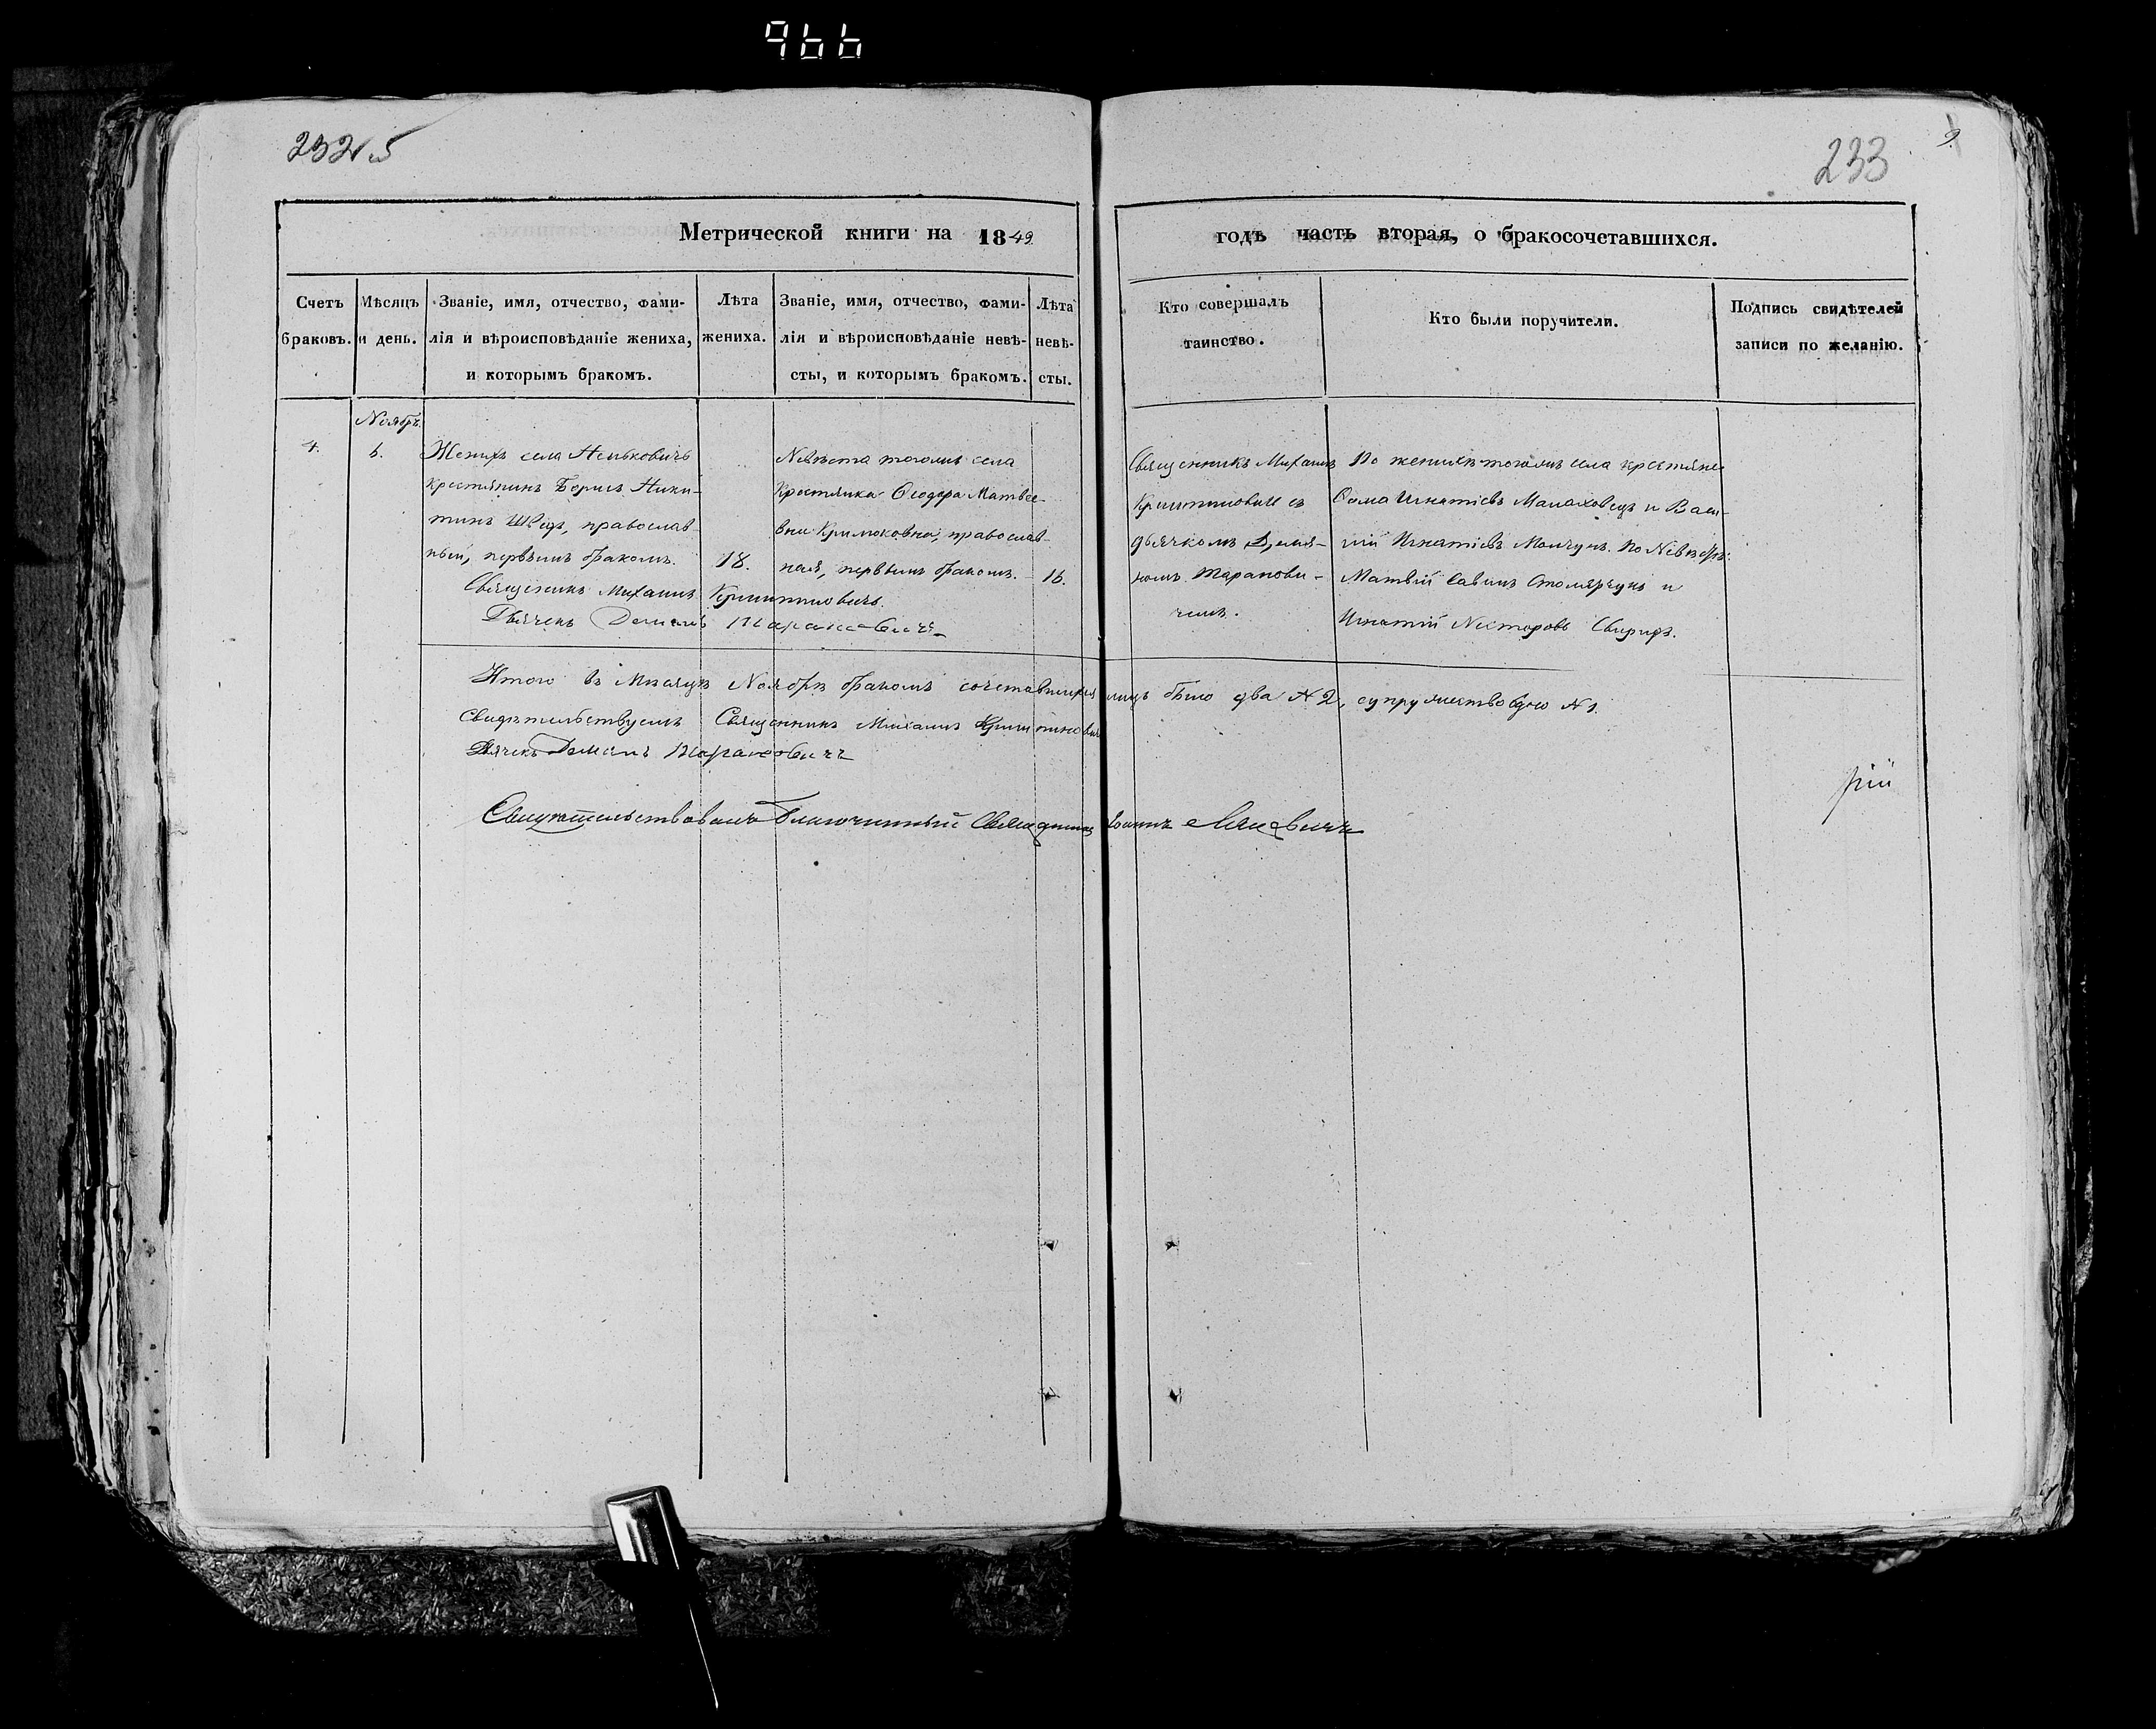 966
232 об
233
9
Метрической книги на 1849
годъ часть вторая, о бракосочетавшихся.
Счетъ браковъ.
Мѣсяцъ и день.
Званіе, имя, отчество, фами-
лія и вѣроисповѣданіе жениха,
и которымъ бракомъ.
Лѣта
жениха.
Званіе, имя, отчество, фами-
лія и вѣроисповѣданіе невѣ-
сты, и которымъ бракомъ.
Лѣта
невѣ-
сты.
Кто совершалъ
таинство.
Кто были поручители.
Подпись свидѣтелей
записи по желанію.
4.
Ноябр.
6.
Женихъ села Неньковичъ
крестянинъ Борисъ Ники-
тинъ Шведъ, православ-
ный, первымъ бракомъ.
18.
Невѣста тогожъ села
Крестянка Ѳеодора Матвее-
вна православ-
ная, первымъ бракомъ.
16.
Священникъ Михаилъ
съ
дьячкомъ Демья-
номъ Таранови-
чемъ.
По женихѣ тогожъ села крестяне
Ѳома Игнатіевъ Малаховецъ и Васи-
лій Игнатіевъ По Невѣстѣ:
Матвій Савинъ Столярчукъ и
Игнатій Несторовъ Свиридъ.
Священикъ Михаилъ
Дьячекъ Демянъ Тарановичъ
Итого въ Мѣсяцѣ Ноябрѣ бракомъ сочетавшихся лицъ было два № 2, супружествъ одно № 1.
Свидѣтельствуемъ Священникъ Михаилъ
Дьячекъ Демянъ Тарановичъ
Свидѣтельствовалъ благочинный Священникъ Іоаннъ
рій